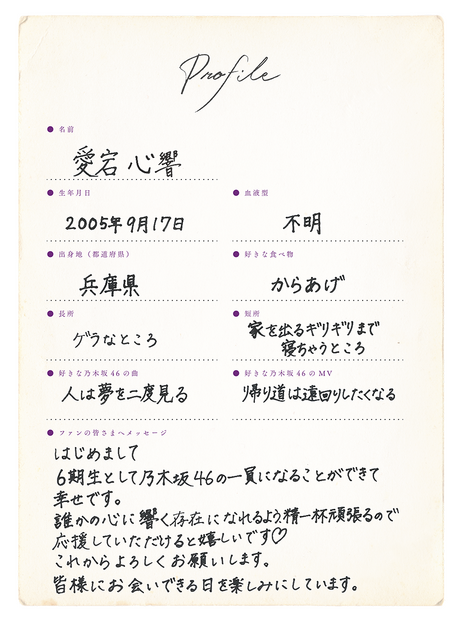 Profile
● 名前
愛宕 心響
● 生年月日
2005年9月17日
● 血液型
不明
● 出身地(都道府県)
兵庫県
● 好きな食べ物
からあげ
● 長所
ゲラなところ
● 短所
家を出るギリギリまで
寝ちゃうところ
● 好きな乃木坂46の曲
人は夢を二度見る
● 好きな乃木坂46のMV
帰り道は遠回りしたくなる
● ファンの皆さまへメッセージ
はじめまして
6期生として乃木坂46の一員になることができて
幸せです。
誰かの心に響く存在になれるよう精一杯頑張るので
応援していただけると嬉しいです♡
これからよろしくお願いします。
皆様にお会いできる日を楽しみにしています。